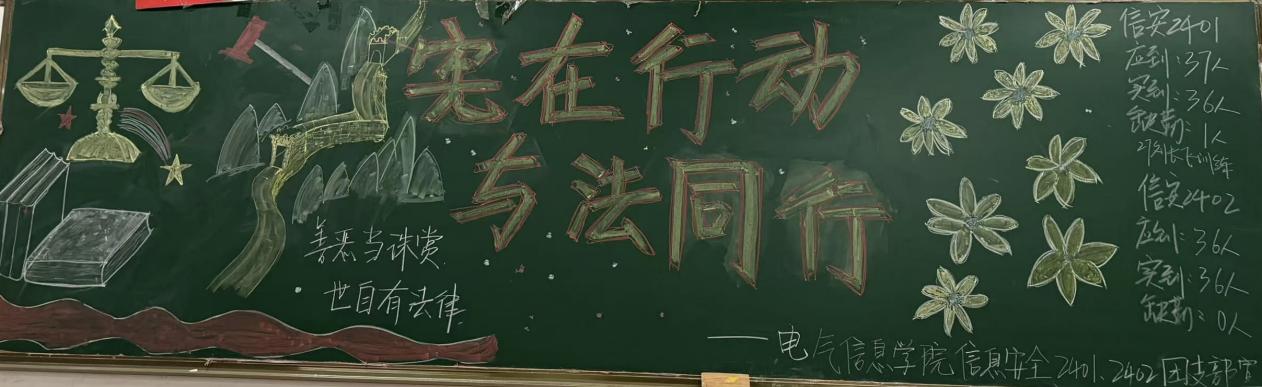 宪在行动
与法同行
善恶当诛赏
世自有法律
信安2401
应到:37人
实到:36人
缺勤:1人
信安2402
应到:36人
实到:36人
缺勤:0人
——电气信息学院信息安全2401、2402团支部宣